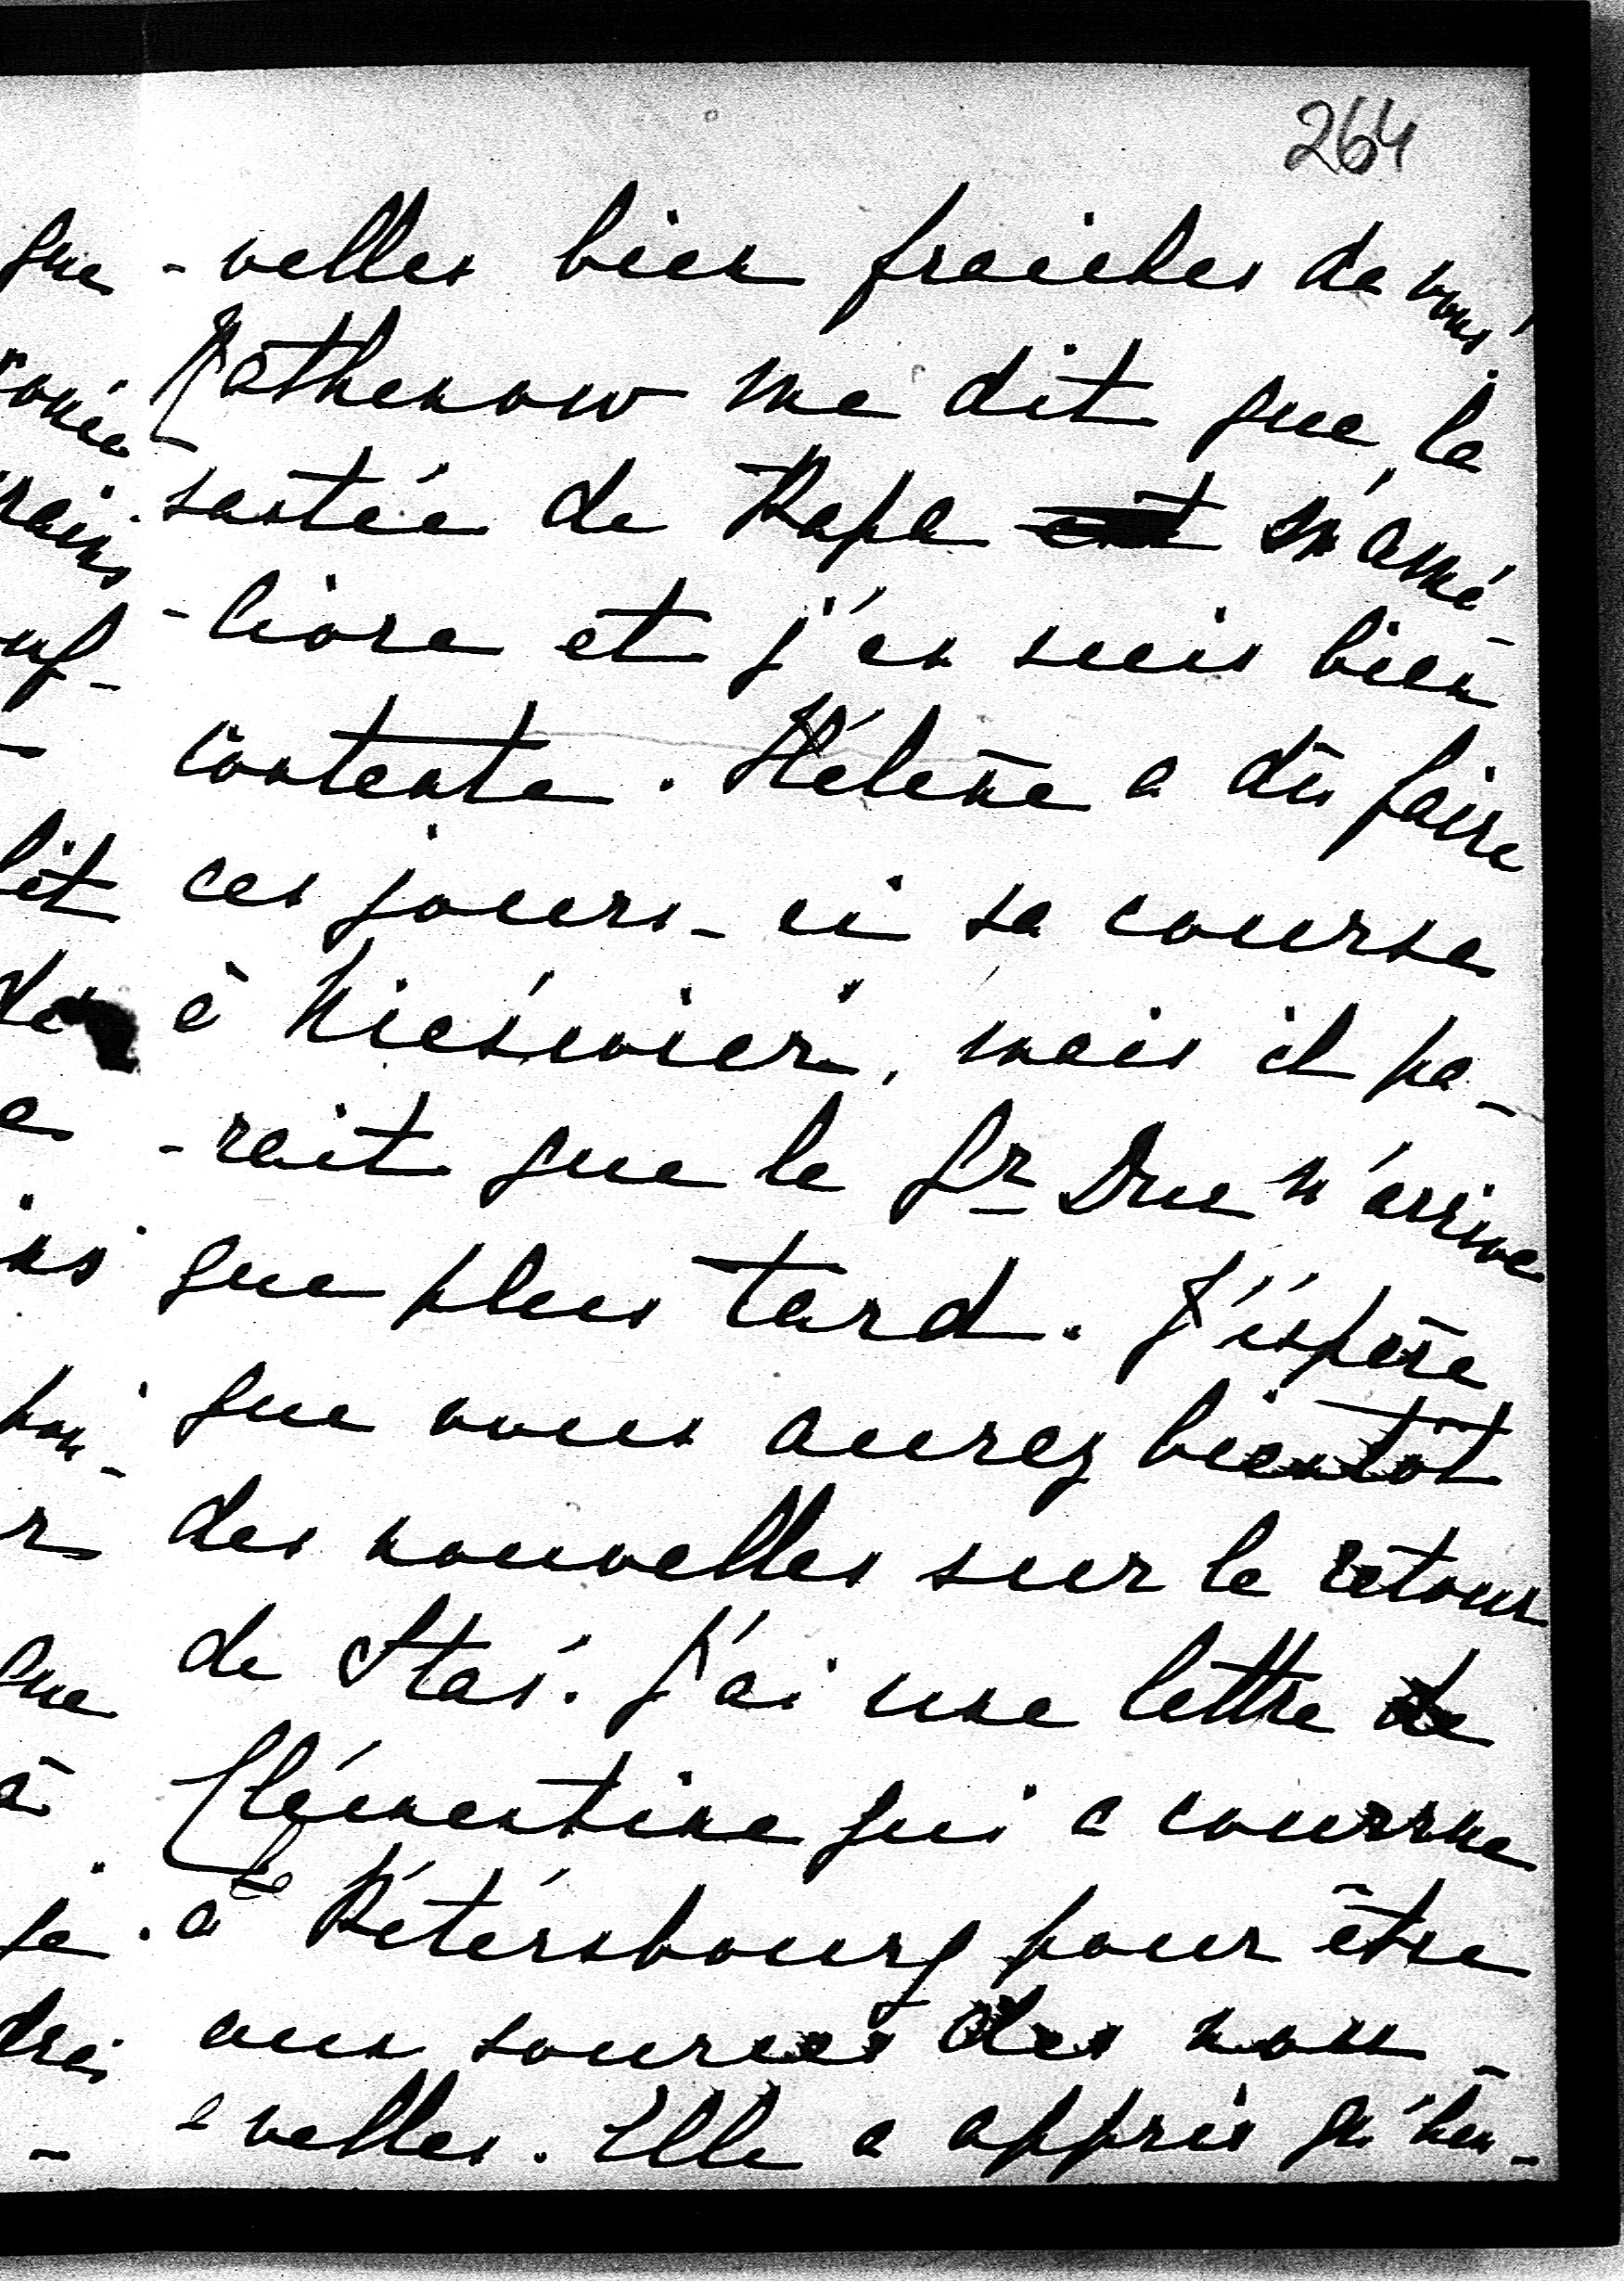 264
-velles bien fraiches de vous.
Rathenow me dit que la
santée de Papa s'amé-
-liore et j'en suis bien
contente. Hélène a dû faire
ces jours-ci sa course
à Nieświeź, mais il pa-
-rait que le Gr Duc n'arrive
que plus tard. J'éspère
que vous aurez bientôt
des nouvelles sur le retour
de Staś. J'ai une lettre de
Clémentine qui a courrue
à Pétérsbourg pour être
aux sources des nou-
-velles. Elle a appris qu'heu-